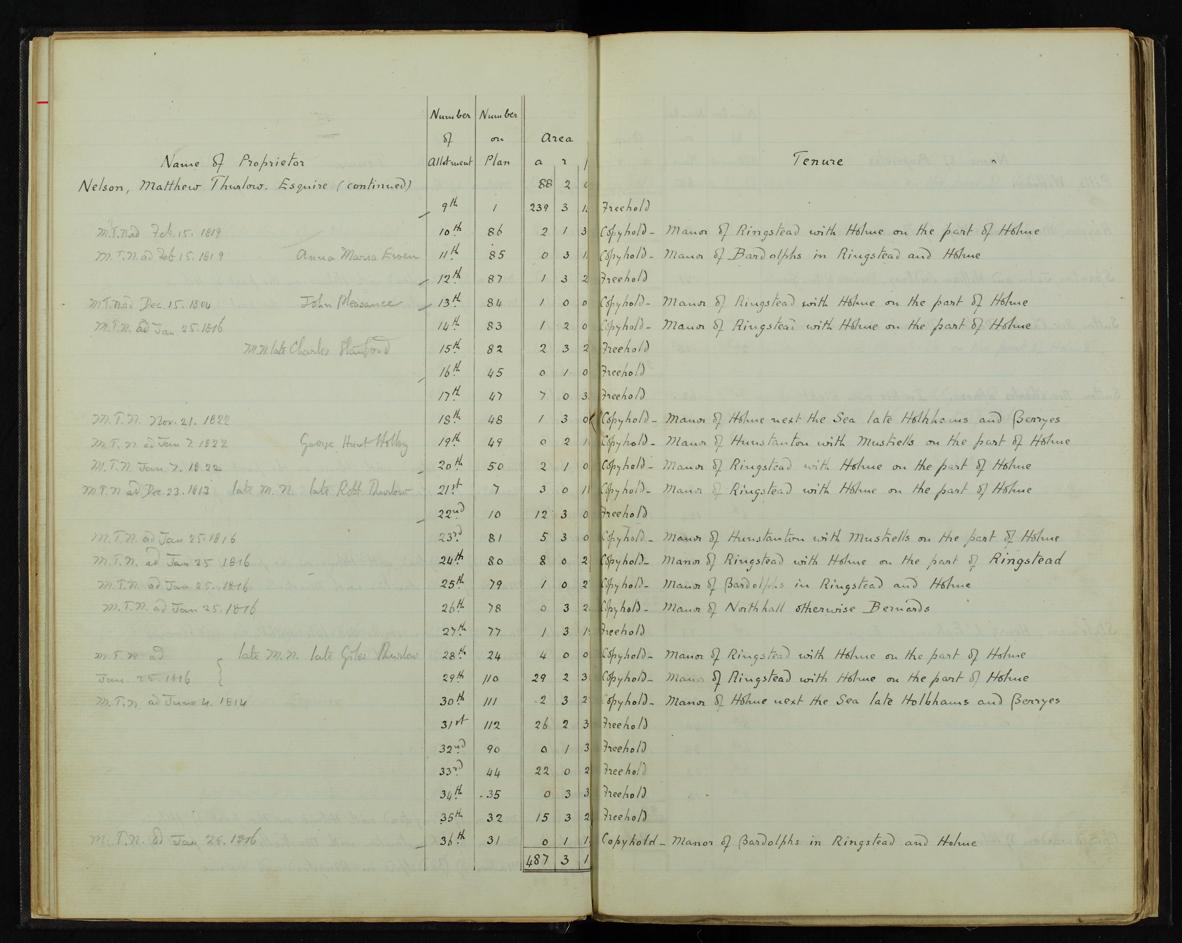 Number Number
of on Area
Name of Proprietor Allotment Plan a r Tenure
Nelson, Matthew Thurlow. Esquire (continued) 88 2
9th 1 239 3 Freehold
M.T.N ad Feb. 15. 1819 10th 86 2 1 Copyhold - Manor of Ringstead with Holme on the part of Holme
M.T.N. ad Feb 15. 1819 Anna Maria 11th 85 0 3 Copyhold - Manor of Bardolphs in Ringstead and Holme
12th 87 1 3 Freehold
M.T.N ad Dec. 15. 1804 John Pleasance 13th 84 1 0 Copyhold - Manor of Ringstead with Holme on the part of Holme
M.T.N. ad Jan 25. 1816 14th 83 1 2 Copyhold - Manor of Ringstead with Holme on the part of Holme
M.N late Charles 15th 82 2 3 Freehold
16th 45 0 1 Freehold
17th 47 7 0 Freehold
M.T.N. Nov. 21. 1822 18th 48 1 3 Copyhold - Manor of Holme next the Sea late Holkhams and Berryes
M.T.N ad Jan 7. 1822 George Hunt Holley 19th 49 0 2 Copyhold - Manor of Hunstanton with Mustrells on the part of Holme
M.T.N. Jan. 7. 1822 20th 50 2 1 Copyhold - Manor of Ringstead with Holme on the part of Holme
M.T.N ad Dec. 23. 1813 late M.N. late Robt. Thurlow 21st 7 3 0 Copyhold - Manor of Ringstead with Holme on the part of Holme
22nd 10 12 3 Freehold
M.T.N. ad Jan 25. 1816 23rd 81 5 3 Copyhold - Manor of Hunstanton with Mustrells on the part of Holme
M.T.N. ad Jan 25 1816 24th 80 8 0 Copyhold - Manor of Ringstead with Holme on the part of Ringstead
M.T.N. ad Jan 25. 1816 25th 79 1 0 Copyhold - Manor of Bardolphs in Ringstead and Holme
M.T.N. ad Jan. 25. 1816 26th 78 0 3 Copyhold - Manor of Northhall otherwise Bernards
27th 77 1 3 Freehold
M.T.N. ad late M.N. late Giles Thurlow 28th 24 4 0 Copyhold - Manor of Ringstead with Holme on the part of Holme
Jan. 25. 1816 29th 110 29 2 Copyhold - Manor of Ringstead with Holme on the part of Holme
M.T.N. ad June 4. 1814 30th 111 2 3 Copyhold - Manor of Holme next the Sea late Holkhams and Berryes
31st 112 26 2 Freehold
32nd 90 0 1 Freehold
33rd 44 22 0 Freehold
34th 35 0 3 Freehold
35th 32 15 3 Freehold
M.T.N. ad Jan. 25. 1816 36th 31 0 1 Copyhold - Manor of Bardolphs in Ringstead and Holme
487 3